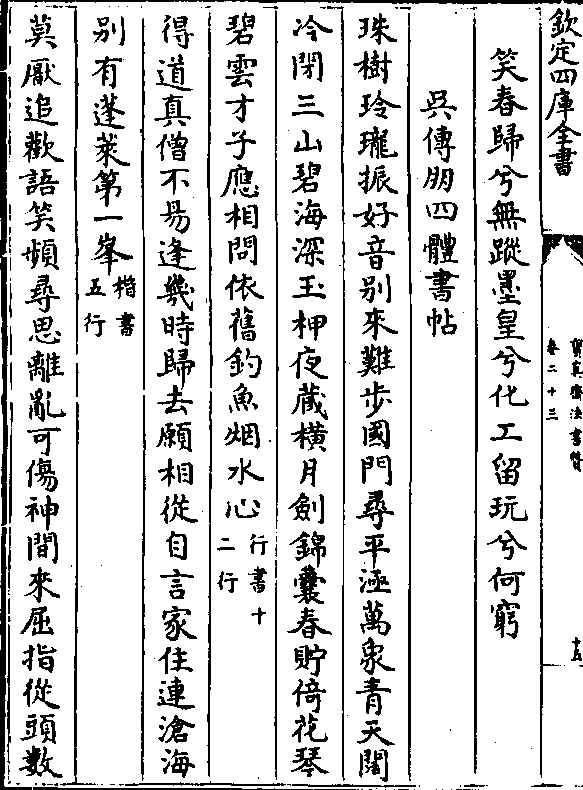 欽定四庫全書
寶真齋法書贊
卷二十三
十五
笑春歸兮無蹤墨皇兮化工留玩兮何窮
吳傅朋四體書帖
珠樹玲瓏振好音别來難步國門尋平逕萬象青天闊
冷閉三山碧海深玉柙夜藏橫月劍錦囊春貯倚花琴
碧雲才子應相問依舊釣魚烟水心行書十二行
得道真僧不易逢幾時歸去願相從自言家住連滄海
别有蓬萊第一峯楷書五行
莫厭追歡語笑頻尋思離亂可傷神閒來屈指從頭數